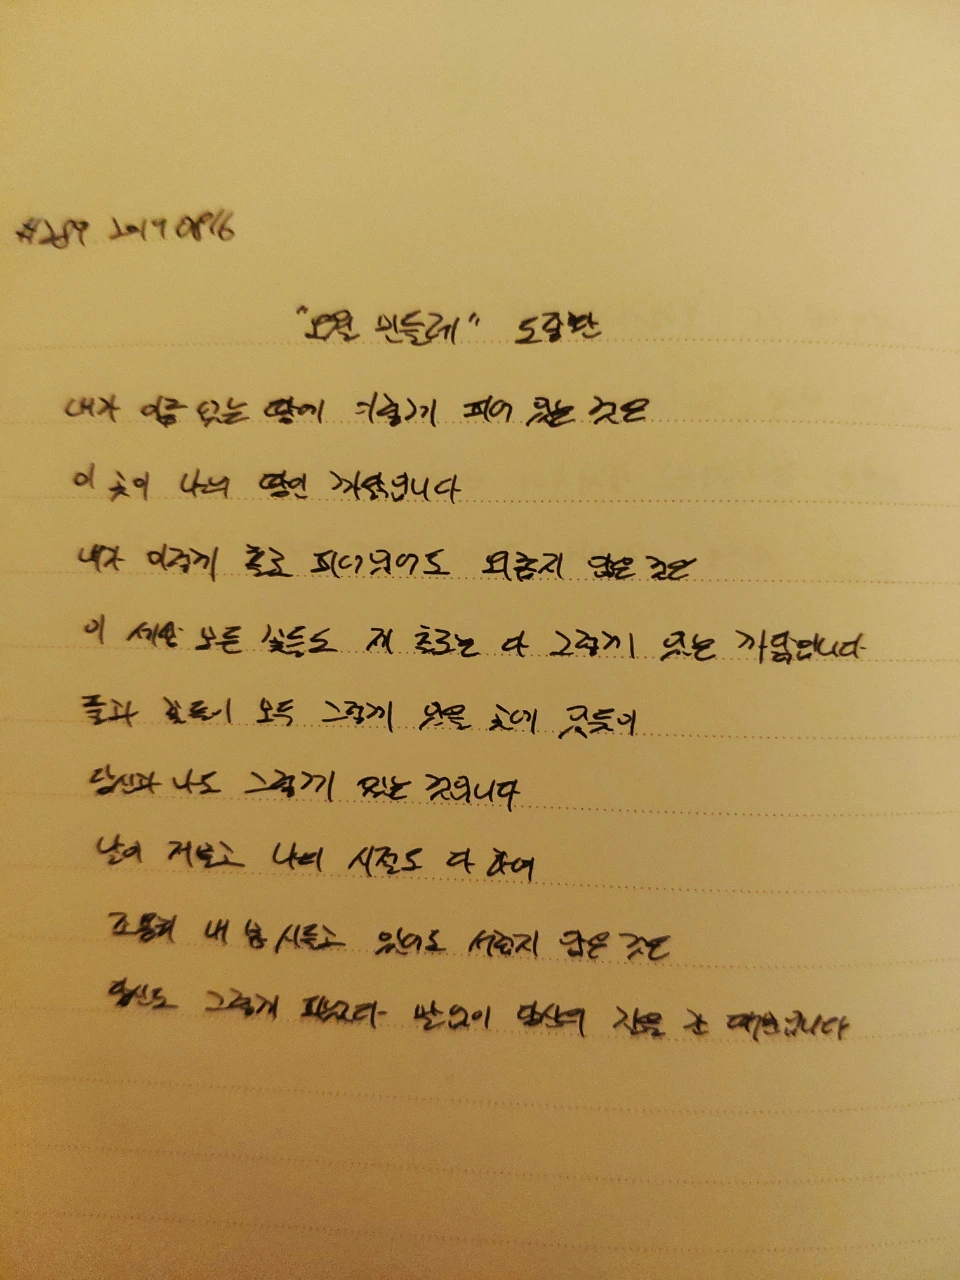 #289 20190816
"오월 민들레" 도종환
내가 이름 없는 땅에 이렇게 피어 있는 것은
이 곳이 나의 땅인 까닭입니다
내가 이렇게 홀로 피어있어도 외롭지 않은 것은
이 세상 모든 꽃들도 제 홀로는 다 그렇게 있는 까닭입니다
풀과 꽃들이 모두 그렇게 있을 곳에 있듯이
당신과 나도 그렇게 있는 것입니다
날이 저물고 나의 시절도 다 하여
조용히 내 몸 시들고 있어도 서럽지 않은 것은
당신도 그렇게 피었다 말없이 당신의 길을 간 때문입니다